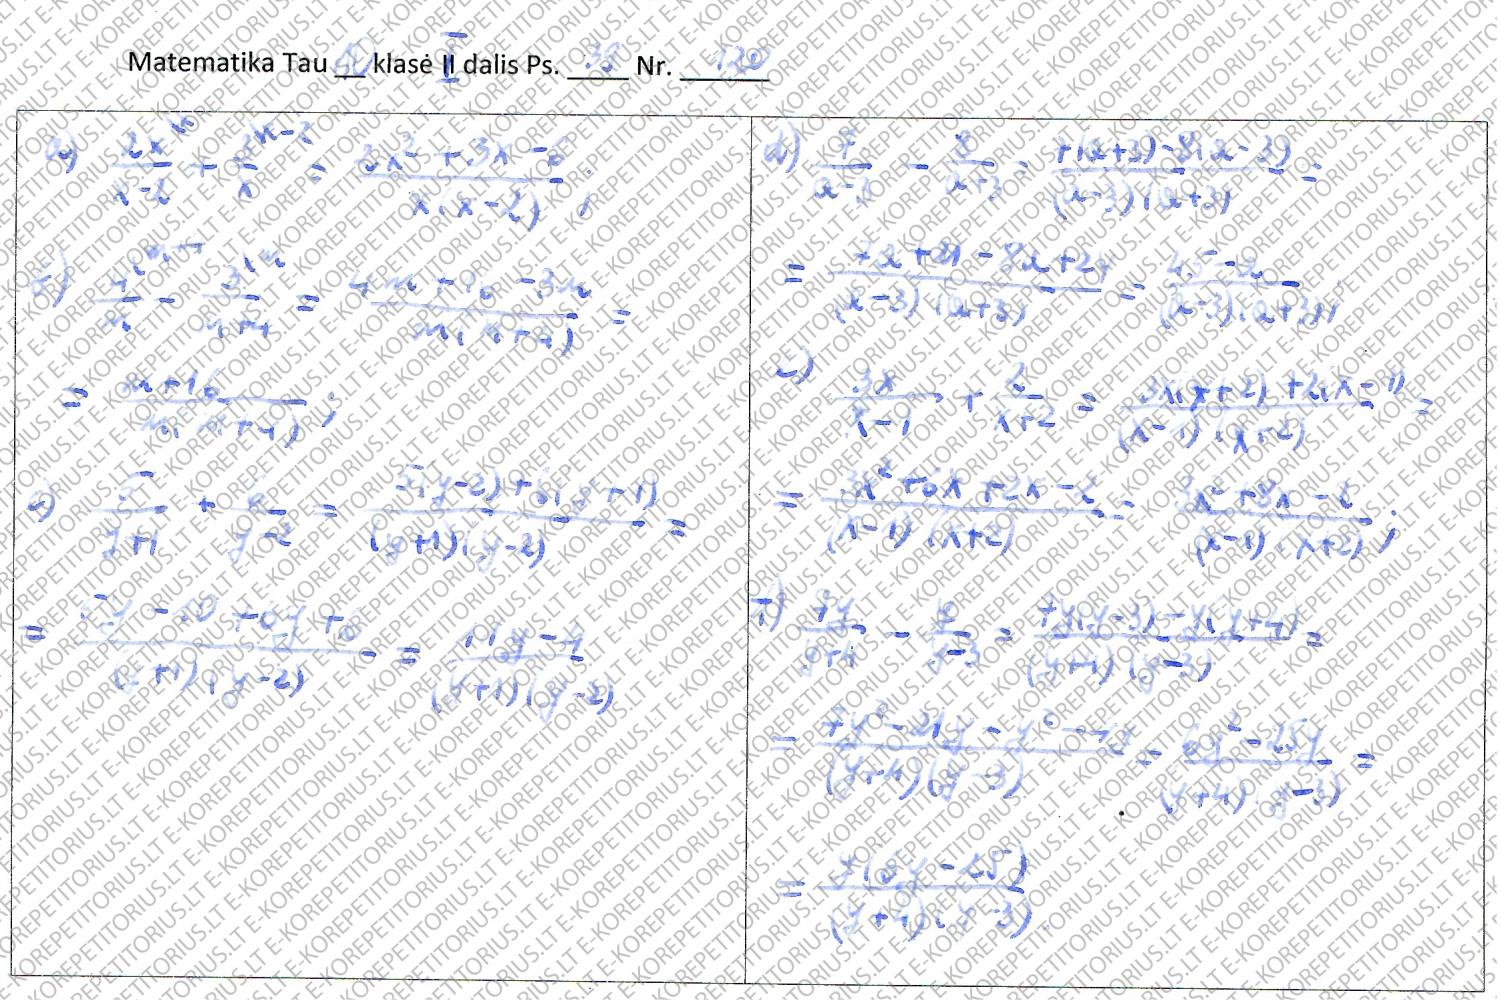 Matematika Tau 10 klasė II dalis Ps. 38 Nr. 120
a) 2x/(x-2) + 3/x = (2x² + 3x - 6)/(x(x-2));
4/m - 3/(m+4) = (4m + 16 - 3m)/(m(m+4)) =
= (m+16)/(m(m+4));
5/(y+1) + 6/(y-2) = (5(y-2)+6(y+1))/((y+1)(y-2)) =
= (5y - 10 + 6y + 6)/((y+1)(y-2)) = (11y - 4)/((y+1)(y-2))
d) 7/(a-3) - 8/(a+3) = (7(a+3)-8(a-3))/((a-3)(a+3)) =
= (7a+21-8a+24)/((a-3)(a+3)) = (45-a)/((a-3)(a+3));
3x/(x-1) + 2/(x+2) = (3x(x+2)+2(x-1))/((x-1)(x+2)) =
= (3x²+6x+2x-2)/((x-1)(x+2)) = (3x²+8x-2)/((x-1)(x+2));
7y/(y+4) - y/(y-3) = (7y(y-3)-y(y+4))/((y+4)(y-3)) =
= (7y²-21y-y²-4y)/((y+4)(y-3)) = (6y²-25y)/((y+4)(y-3)) =
= y(6y-25)/((y+4)(y-3))
E-KOREPETITORIUS.LT